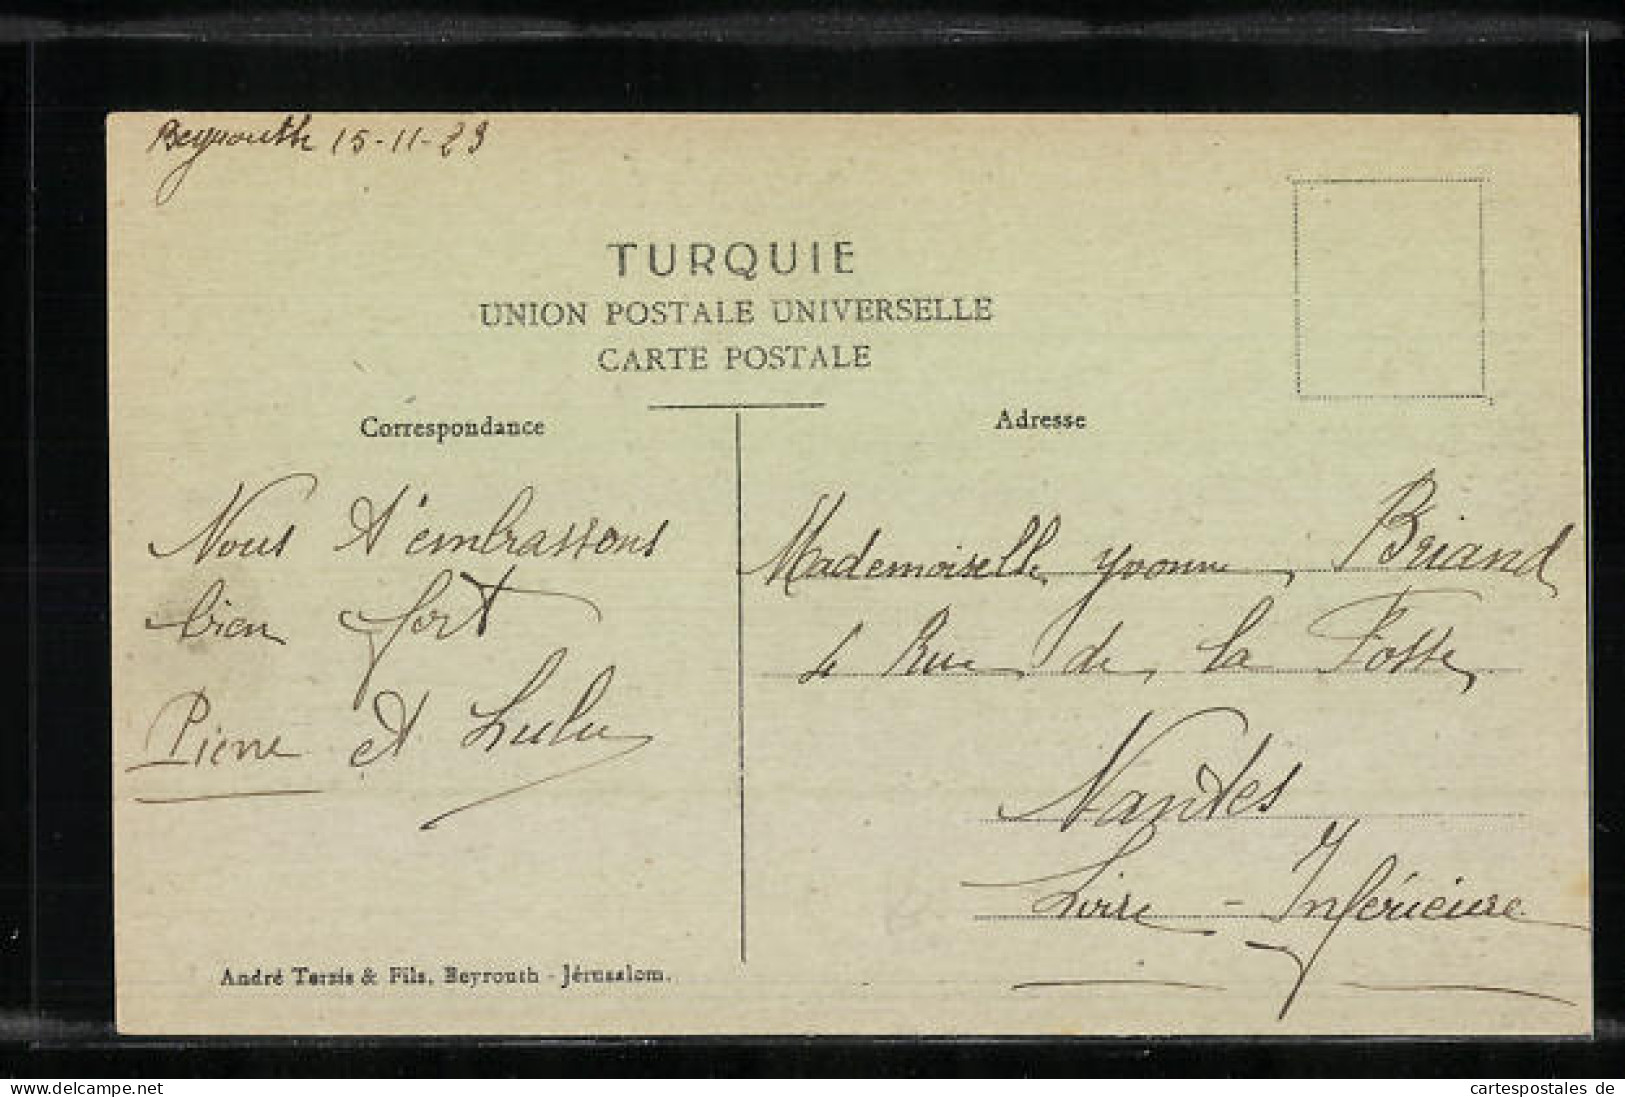 Beyrouth 15-11-23
TURQUIE
UNION POSTALE UNIVERSELLE
CARTE POSTALE
Correspondance
Adresse
Nous t'embrassons
bien fort
Pierre et Lulu
Mademoiselle Yvonne Briand
4 Rue de la Fosse
Nantes
Loire - Inférieure
André Terzis & Fils, Beyrouth - Jérusalem.
cartespostales de